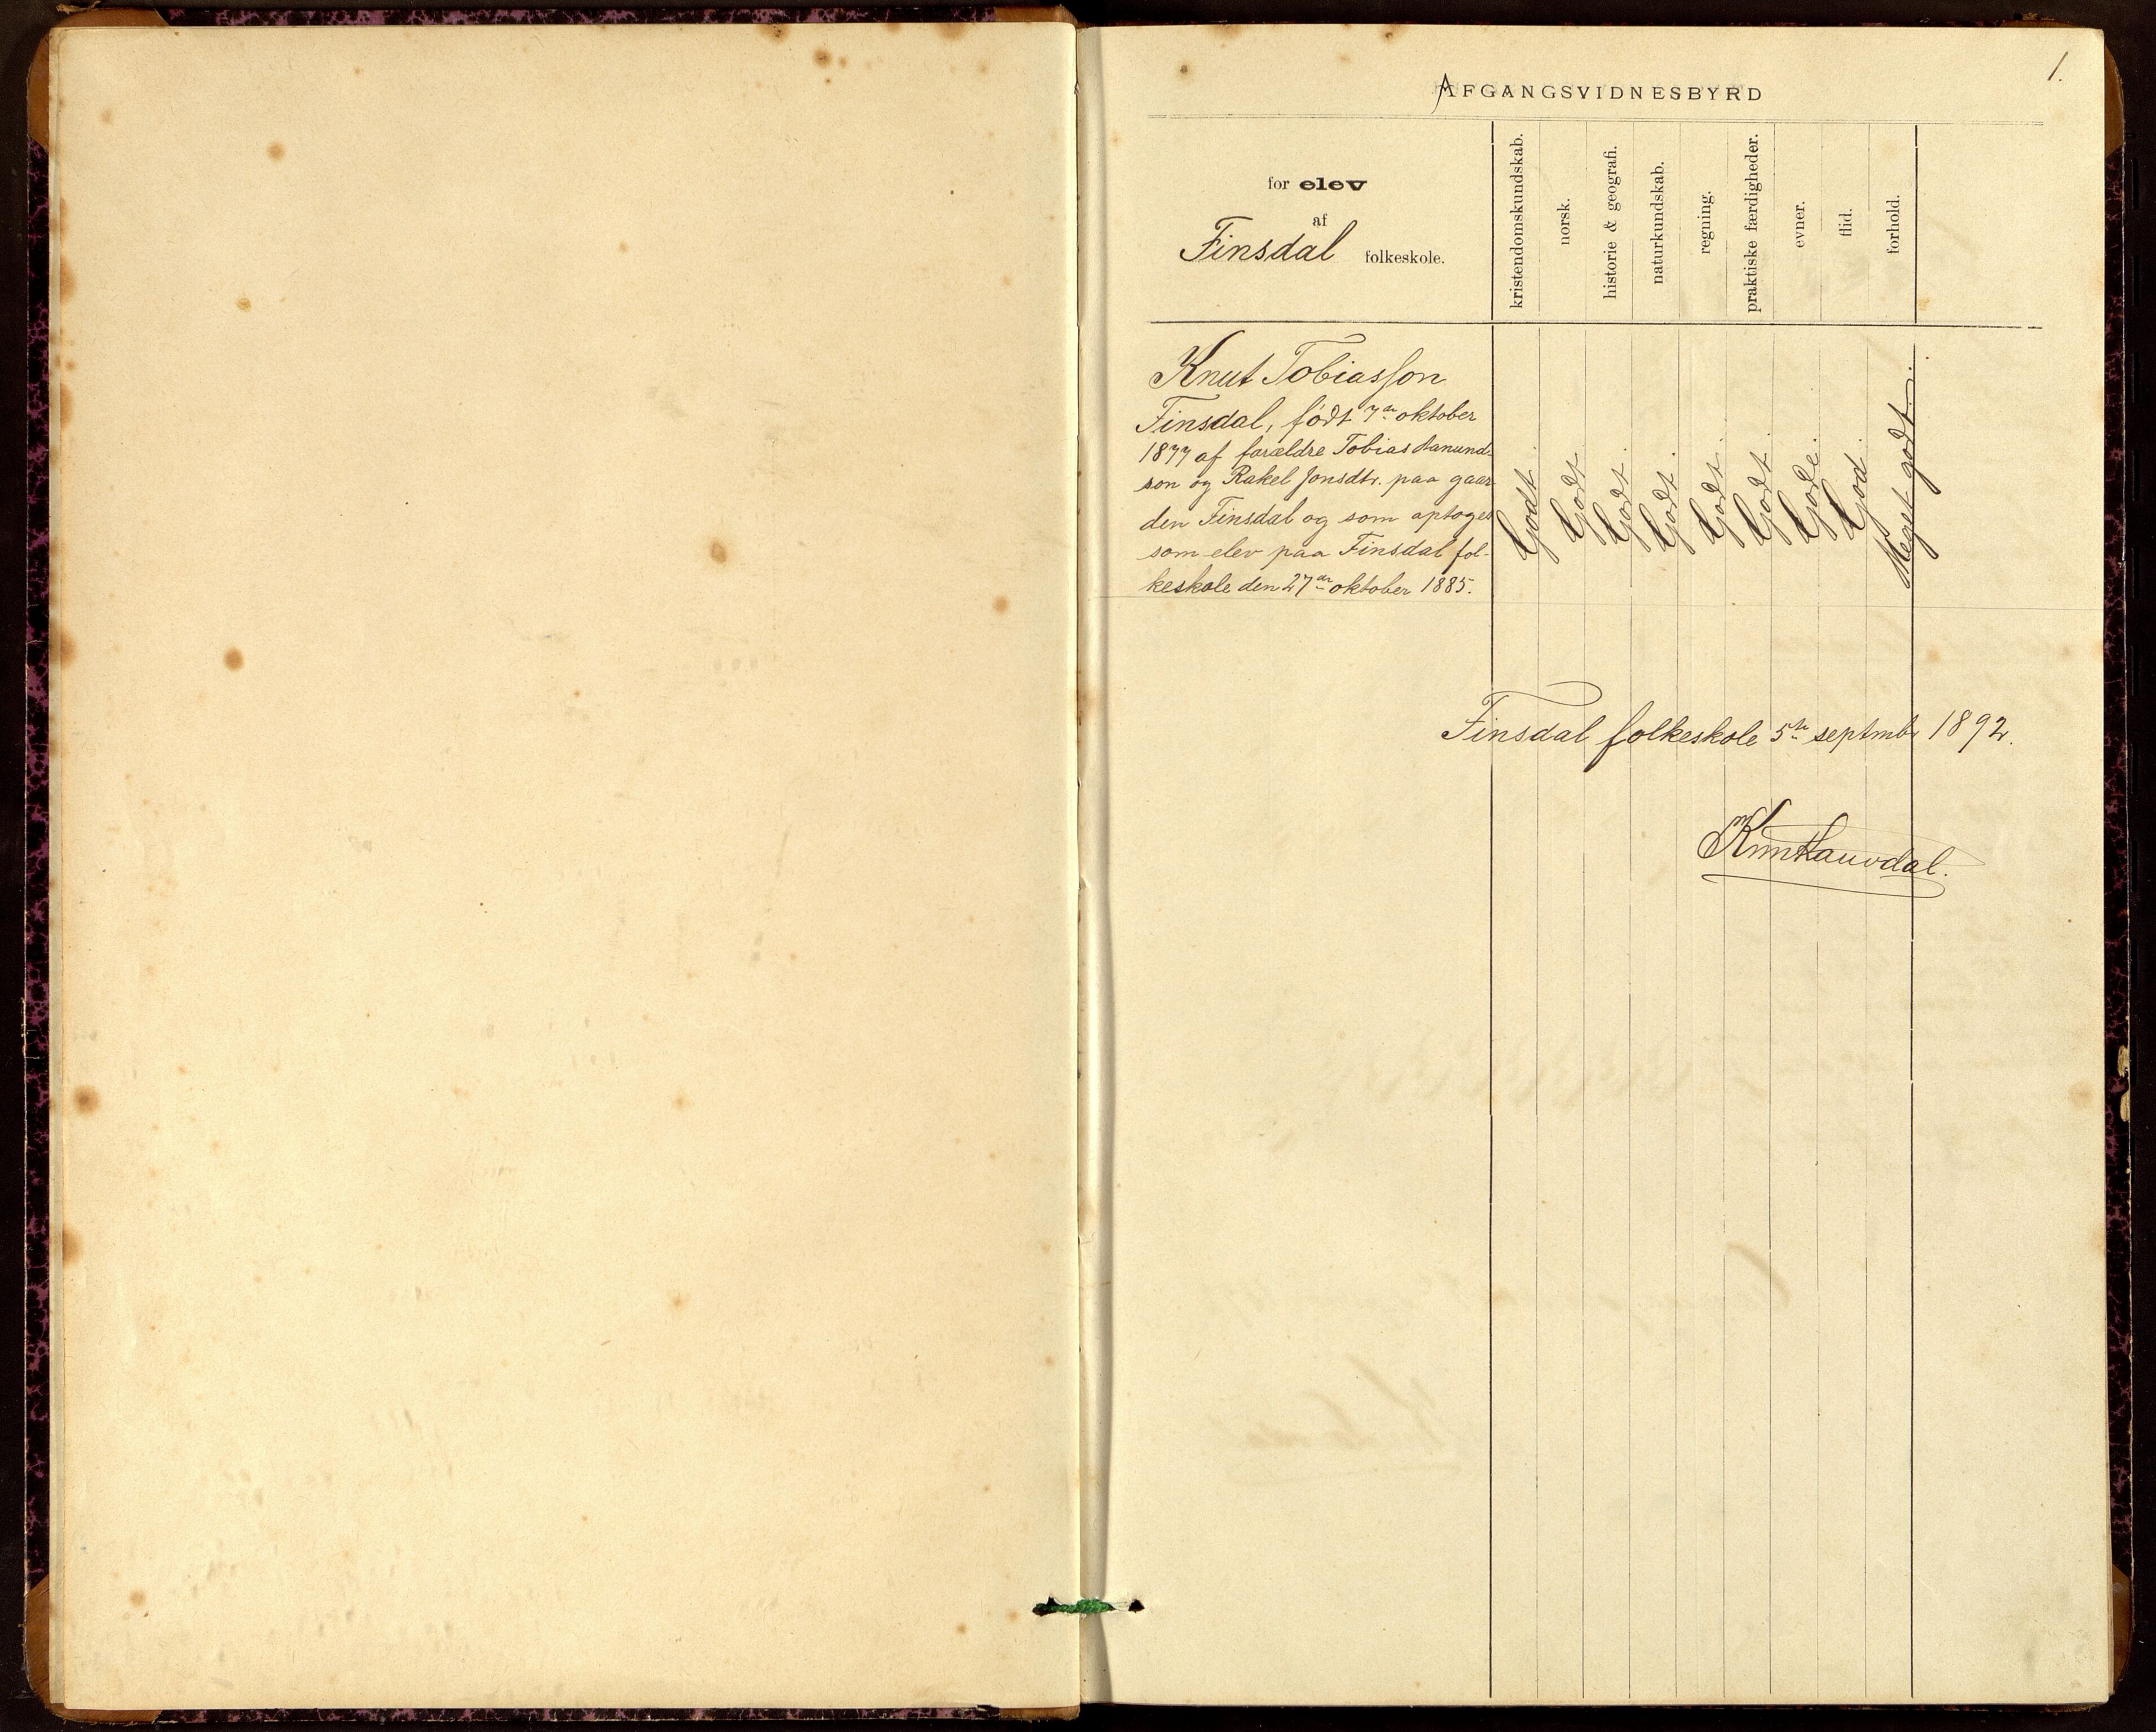 1.
AFGANGSVIDNESBYRD
for elev
af
Finsdal folkeskole.
kristendomskundskab.
norsk.
historie & geografi.
naturkundskab.
regning.
praktiske færdigheder.
evner.
flid.
forhold.
Knut Tobiasson
Finsdal, født 7de oktober
1877 af forældre Tobias Aanund-
son og Rakel Jonsdtr. paa gaar-
den Finsdal og som optoges
som elev paa Finsdal fol-
keskole den 27de oktober 1885.
Godt.
Godt.
Godt.
Godt.
Godt.
Godt.
Gode.
God.
Meget godt.
Finsdal folkeskole 5te septmbr 1892.
Knut Lauvdal.